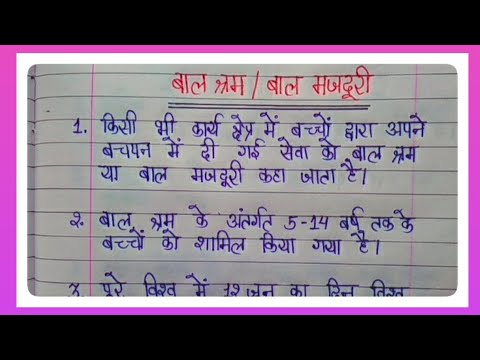 बाल श्रम / बाल मजदूरी
1. किसी भी कार्य क्षेत्र में बच्चों द्वारा अपने
बचपन में दी गई सेवा को बाल श्रम
या बाल मजदूरी कहा जाता है।
२. बाल श्रम के अंतर्गत 5-14 वर्ष तक के
बच्चों को शामिल किया गया है।
3. पूरे विश्व में 12 जून का दिन विश्व